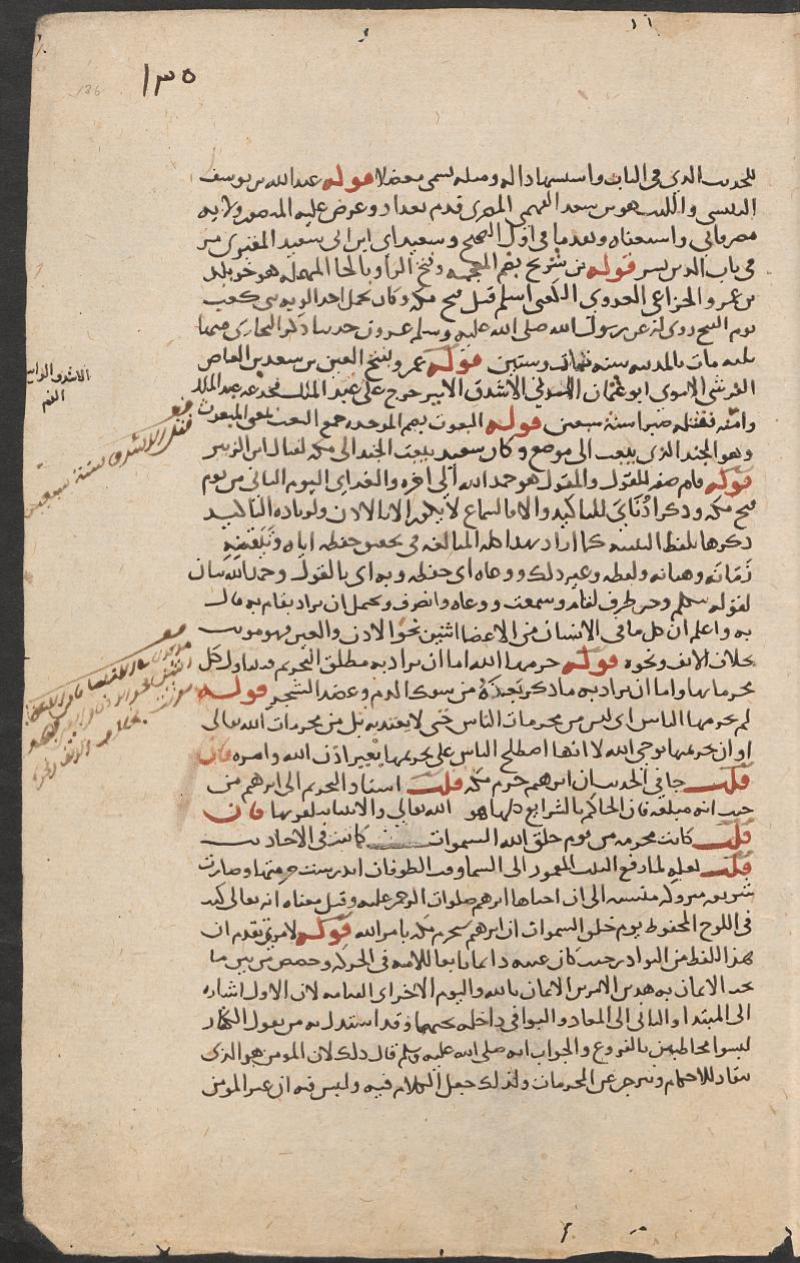 ١٣٥
136
للحديث الذي في الباب واستشهاد اله ومثله يسمى معضلا قوله عبد الله بن يوسف
التنيسي والليث هو بن سعد الفهمي المصري قدم بغداد وعرض عليه المنصور ولاية
مصر فابى واستعفاه وتقدما في اول الصحيح وسعيد اي ابن ابي سعيد المقبري مر
في باب الدين يسر قوله بن شريح بضم المعجمة وفتح الرا وبالحا المهملة هو خويلد
بن عمرو الخزاعي العدوي الكعبي اسلم قبل فتح مكة وكان يحمل احد الوية بني كعب
يوم الفتح روي له عن رسول الله صلى الله عليه وسلم عشرون حديثا ذكر البخاري منها
ثلثة مات بالمدينة سنة ثمان وستين قوله عمرو بفتح العين بن سعيد بن العاص
القرشي الاموي ابو عثمان المدني الاشدق الامير خرج على عبد الملك فخدعه عبد الملك
وامنه فقتله صبرا سنة سبعين قوله البعوث بضم الموحدة جمع البعث بمعنى المبعوث
وهو الجند الذي يبعث الى موضع وكان سعيد يبعث الجند الى مكة لقتال ابن الزبير
قوله قام صفة للقول والمقول هو حمد الله الى اخره والغد اي اليوم الثاني من يوم
فتح مكة وذكر اذناي للتاكيد والا فالسماع لا يكون الا بالاذن ولزيادة التاكيد
ذكرها بلفظ التثنية كما اراد بهذا كله المبالغة في تحقيق حفظه اياه وتيقنه
زمانه وهيأته ولفظه وغير ذلك ووعاه اي حفظه وبه اي بالقول وحمد الله بيان
لقوله تكلم وحين ظرف لقام وسمعت ووعاه وابصرت ويحتمل ان يراد بقام به قال
به واعلم ان كل ما في الانسان من الاعضا اثنين نحو الاذن والعين فهو مونث
بخلاف الانف ونحوه قوله حرمها الله اما ان يراد به مطلق التحريم فيتناول كل
محرماتها واما ان يراد به ما ذكر بعده من سفك الدم وعضد الشجر قوله
لم يحرمها الناس اي ليس من محرمات الناس حتى لا يعتد به بل من محرمات الله تعالى
او ان تحريمها بوحي الله لا انها اصطلح الناس على تحريمها بغير اذن الله وامره فان
قلت جا في الحديث ان ابرهيم حرم مكة قلت اسناد التحريم الى ابرهيم من
حيث انه مبلغه فان الحاكم بالشرايع كلها هو الله تعالى والانبيا يبلغونها فان
قلت كانت محرمة من يوم خلق الله السموات كما ثبت في الاحاديث
قلت لعله لما رفع البيت المعمور الى السما وقت الطوفان اندرست حرمتها وصارت
شريعة متروكة منسية الى ان احياها ابرهيم صلوات الرحمن عليه وقيل معناه انه تعالى كتب
في اللوح المحفوظ يوم خلق السموات ان ابرهيم سيحرم مكة بامر الله قوله لامرئ تقدم ان
هذا اللفظ من النوادر حيث كان عينه دائما تابعا للامه في الحركة وخصص من بين ما
يجب الايمان به هذين الامرين الايمان بالله واليوم الاخر اي القيامة لان الاول اشارة
الى المبتدا والثاني الى المعاد والبواقي داخلة تحتهما وقد استدل به من يقول الكفار
ليسوا مخاطبين بالفروع والجواب انه صلى الله عليه وسلم قال ذلك لان المومن هو الذي
ينقاد للاحكام وينزجر عن المحرمات ولذلك جعل الكلام فيه وليس فيه ان غير المومن
قف
قتل الاشدق سنة سبعين
قف